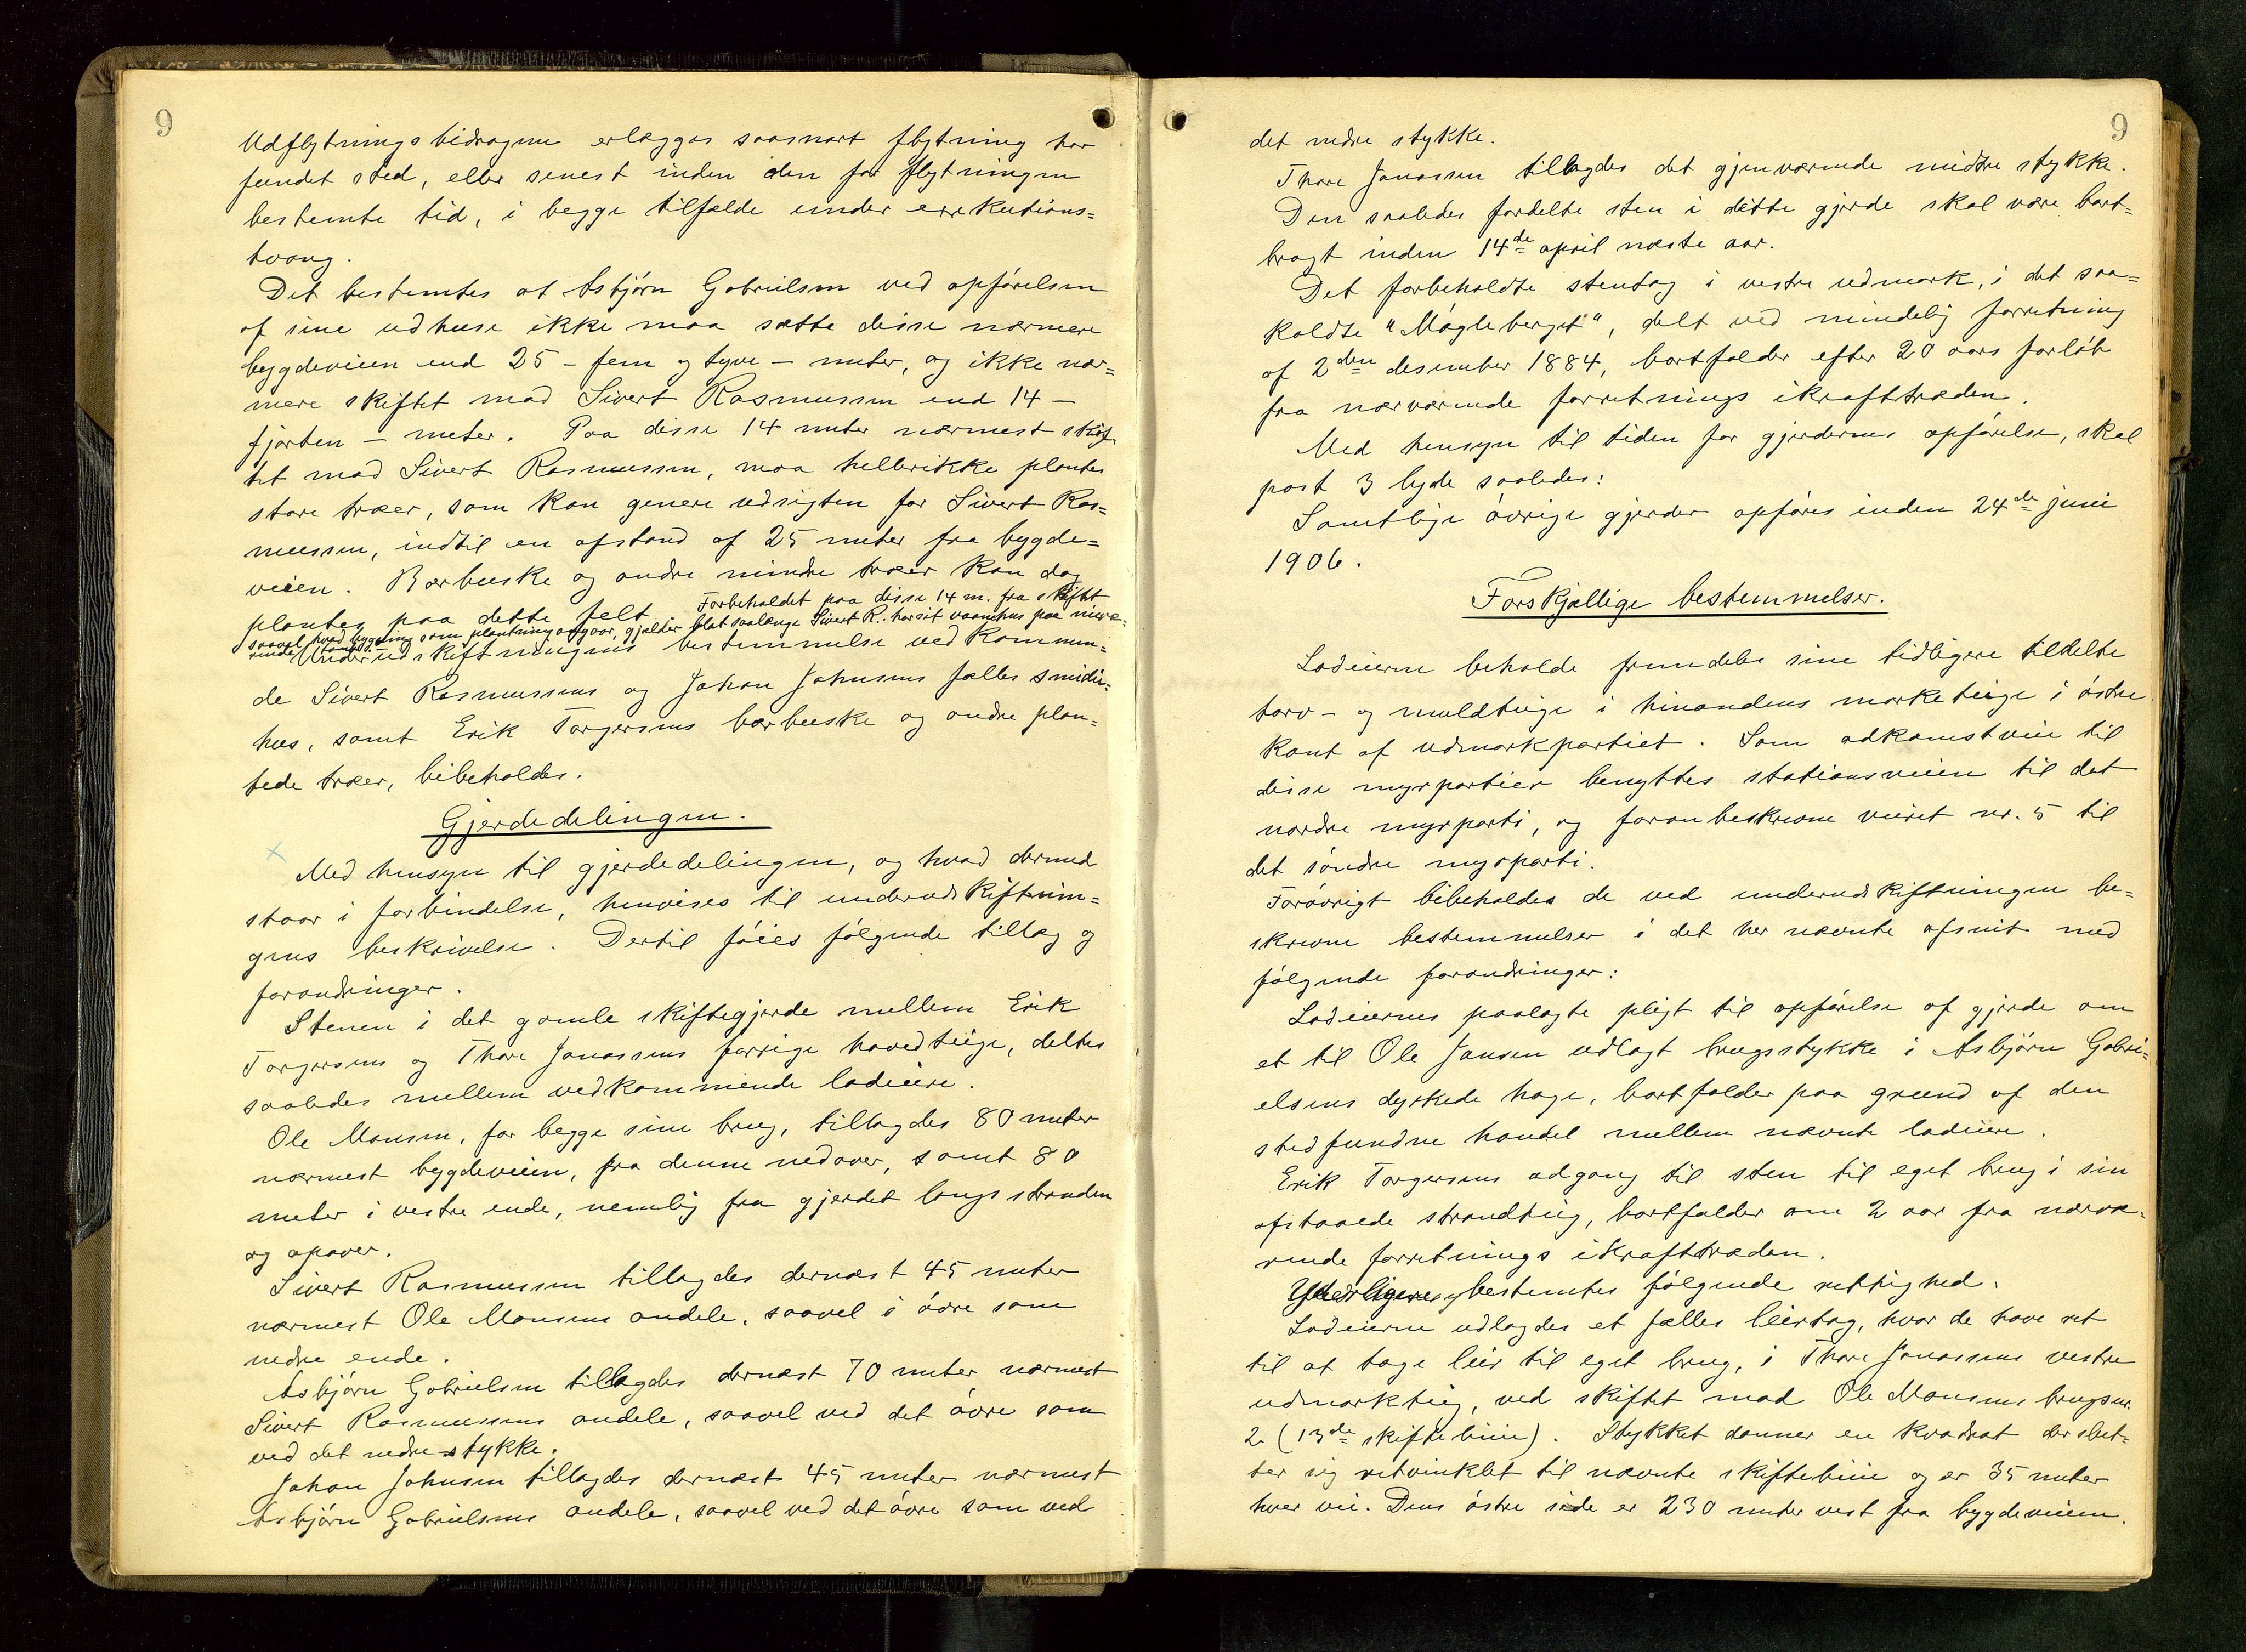 9
Udflytningsbidragene erlægges saasnart flytning har
fundet sted, eller senest inden den for flytningen
bestemte tid, i begge tilfælde under exekutions=
tvang.
Det bestemtes at Asbjørn Gabrielsen ved opførelsen
af sine udhuse ikke maa sætte disse nærmere
bygdeveien end 25 - fem og tyve - meter, og ikke nær=
mere skiftet mod Sivert Rasmussen end 14 -
fjorten - meter. Paa disse 14 meter nærmest skif=
tet mod Sivert Rasmussen, maa hellerikke plantes
store træer, som kan genere udsigten for Sivert Ras=
mussen, indtil en afstand af 25 meter fra bygde=
veien. Bærbuske og andre mindre træer kan dog
plantes paa dette felt. Forbeholdet paa disse 14 m. fra skiftet
saavel hvad bygning som plantning angaar, gjælder blot saalænge Sivert R. har sit vaanhus paa nuvæ=
rende tomt.
Underudskiftningens bestemmelse vedkommen=
de Sivert Rasmussens og Johan Johnsens fælles smidie=
hus, samt Erik Torgersens bærbuske og andre plan=
tede træer, bibeholdes.
Gjerdedelingen.
Med hensyn til gjerdedelingen, og hvad dermed
staar i forbindelse, henvises til underudskiftnin=
gens beskrivelse. Dertil føies følgende tillæg og
forandringer.
Stenen i det gamle skiftegjerde mellem Erik
Torgersens og Thore Jonassens forrige hovedteige, deltes
saaledes mellem vedkommende lodeiere.
Ole Monsen, for begge sine brug, tillagdes 80 meter
nærmest bygdeveien, fra denne nedover, samt 80
meter i vestre ende, nemlig fra gjerdet langs stranden
og opover.
Sivert Rasmussen tillagdes dernæst 45 meter
nærmest Ole Monsens andele, saavel i øvre som
nedre ende.
Asbjørn Gabrielsen tillagdes dernæst 70 meter nærmest
Sivert Rasmussens andele, saavel ved det øvre som
ved det nedre stykke.
Johan Johnsen tillagdes dernæst 45 meter nærmest
Asbjørn Gabrielsens andele, saavel ved det øvre som ved
9
det nedre stykke.
Thore Jonassen tillagdes det gjenværende midtre stykke.
Den saaledes fordelte sten i dette gjerde skal være bort=
bragt inden 14de april næste aar.
Det forbeholdte stentag i vestre udmark, i det saa=
kaldte "Mågleberget", delt ved mindelig forretning
af 2den desember 1884, bortfalder efter 20 aars forløb
fra nærværende forretnings ikrafttræden.
Med hensyn til tiden for gjerdernes opførelse, skal
post 3 lyde saaledes:
Samtlige øvrige gjerder opføres inden 24de juni
1906.
Forskjællige bestemmelser.
Lodeierne beholde fremdeles sine tidligere tildelte
torv- og muldteige i hinandens marketeige i østre
kant af udmarkpartiet. Som adkomstveie til
disse myrpartier benyttes stationsveien til det
nordre myrparti, og foran beskrevne veiret nr. 5 til
det søndre myrparti.
Forøvrigt bibeholdes de ved underudskiftningen be=
skrevne bestemmelser i det her nævnte afsnit med
følgende forandringer:
Lodeiernes paalagte pligt til opførelse af gjerde om
et til Ole Jansen udlagt brugsstykke i Asbjørn Gabri=
elsens dyrkede hage, bortfalder paa grund af den
stedfundne handel mellem nævnte lodeiere.
Erik Torgersens adgang til sten til eget brug i sin
afstaaede strandteig, bortfalder om 2 aar fra nærvæ=
rende forretnings ikrafttræden.
Yderligere bestemtes følgende rettighed.
Lodeierne udlagdes et fælles leirtag, hvor de have ret
til at tage leir til eget brug, i Thore Jonassens vestre
udmarkteig, ved skiftet mod Ole Monsens brugsnr.
2 (13de skiftelinie). Stykket danner en kvadrat der slut=
ter sig retvinklet til nævnte skiftelinie og er 35 meter
hver vei. Dens østre side er 230 meter vest fra bygdeveien.